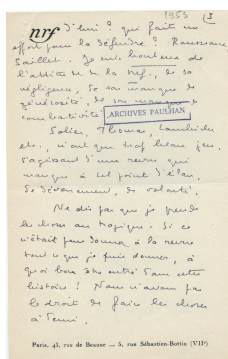 1953
3
nrf
d'lui ? qui fait un
effort pour la défendre ? Rousseaux
Saillet. Je suis honteux de
l'attitude de la nrf, de sa
négligence, de son manque de
générosité, de son manque de
combativité.
ARCHIVES PAULHAN
Solier, Thomas, Lambrichs
etc., n'ont que trop beau jeu,
s'agissant d'une revue qui
manque à tel point d'élan,
de dévouement, de volonté.
Ne dis pas que je prends
les choses au tragique. Si ce
n'était pas pour donner à la revue
tout ce que je puis donner, à
quoi bon être entré dans cette
histoire ! Nous n'avons pas
le droit de faire les choses
à demi.
Paris, 43, rue de Beaune — 5, rue Sébastien-Bottin (VIIᵉ)